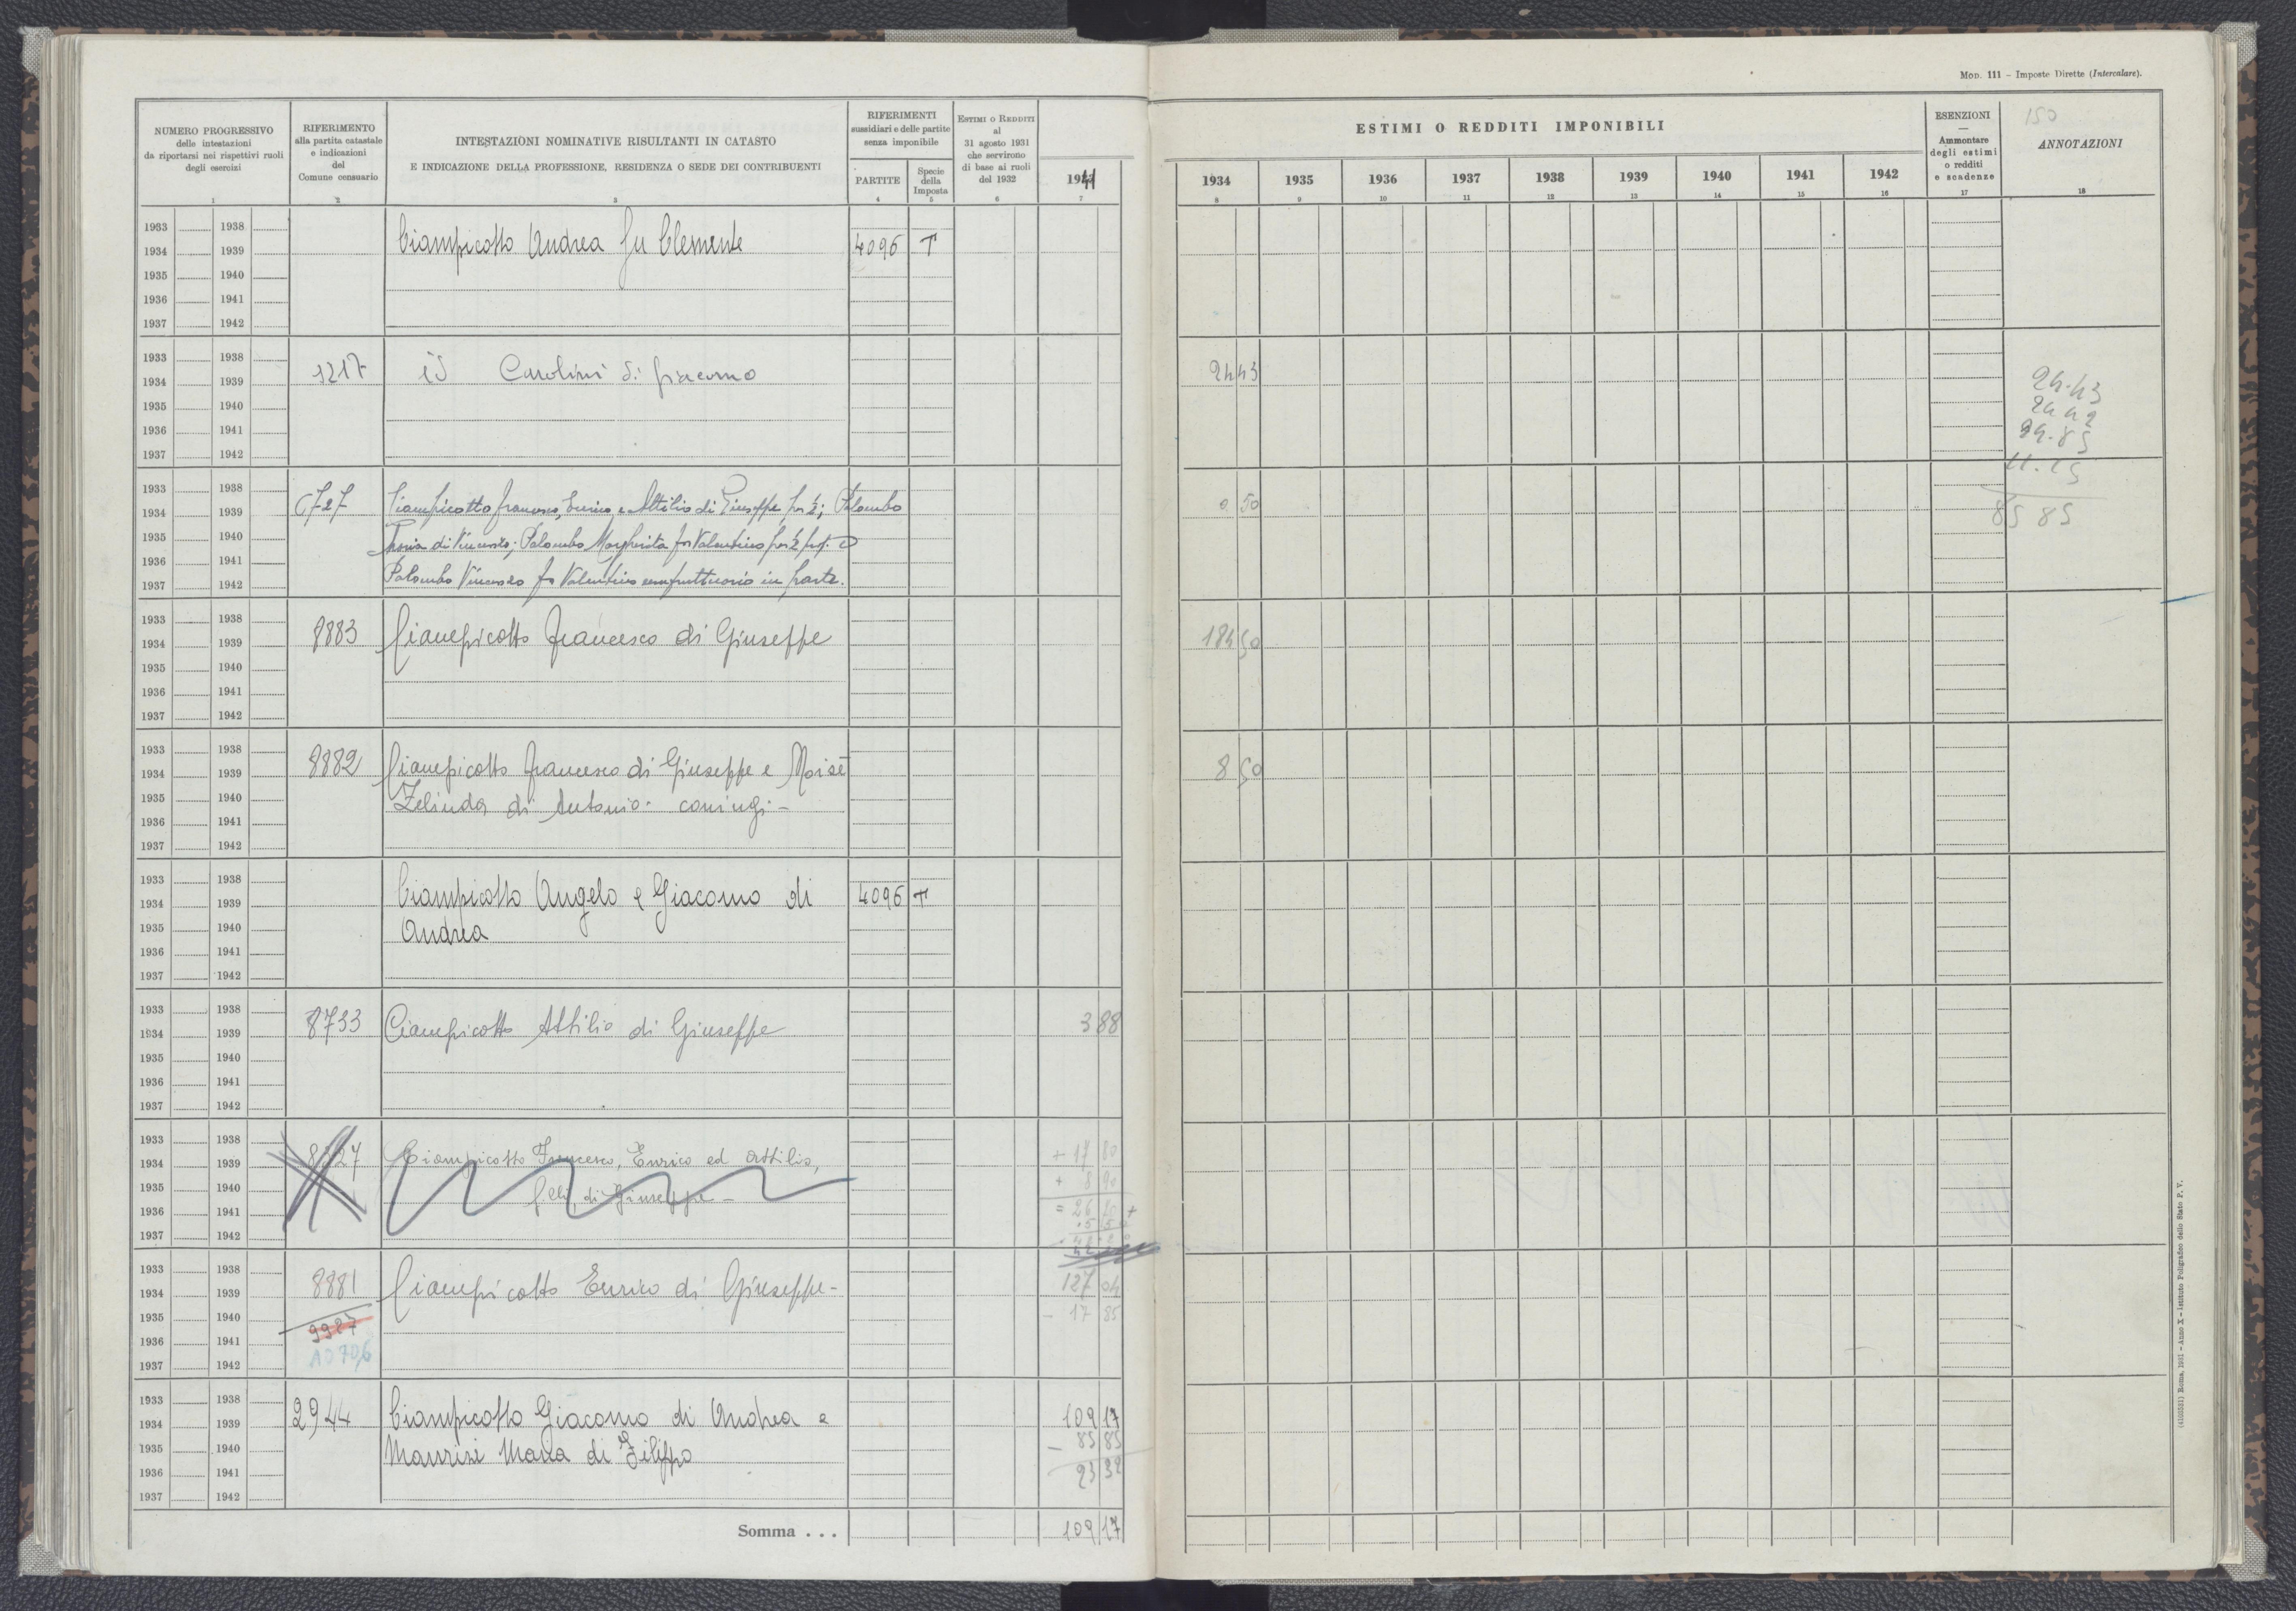 Mod. 111 – Imposte Dirette (Intercalare).
NUMERO PROGRESSIVO
delle intestazioni
da riportarsi nei rispettivi ruoli
degli esercizi
1
RIFERIMENTO
alla partita catastale
e indicazioni
del
Comune censuario
2
INTESTAZIONI NOMINATIVE RISULTANTI IN CATASTO
E INDICAZIONE DELLA PROFESSIONE, RESIDENZA O SEDE DEI CONTRIBUENTI
3
RIFERIMENTI
sussidiari e delle partite
senza imponibile
PARTITE
4
Specie
della
Imposta
5
ESTIMI O REDDITI
al
31 agosto 1931
che servirono
di base ai ruoli
del 1932
6
1941
7
ESTIMI O REDDITI IMPONIBILI
1934 1935 1936 1937 1938 1939 1940 1941 1942
8 9 10 11 12 13 14 15 16
ESENZIONI
—
Ammontare
degli estimi
o redditi
e scadenze
17
150
ANNOTAZIONI
18
1933 1938
1934 1939 Ciampicotto Andrea fu Clemente 4096 T
1935 1940
1936 1941
1937 1942
1933 1938
1934 1939 1217 id Carolini di Giacomo 24 43
1935 1940
1936 1941
1937 1942
24.43
24 42
24.85
11.15
85 85
1933 1938
1934 1939 6727 Ciampicotto Francesco, Enrico, e Attilio di Giuseppe per ½; Palombo
1935 1940 Maria di Vincenzo; Palombo Margherita fu Valentino per ½ prop. e
1936 1941
1937 1942 Palombo Vincenzo fu Valentino usufruttuario in parte.
0 50
1933 1938
1934 1939 8883 Ciampicotto Francesco di Giuseppe 184 50
1935 1940
1936 1941
1937 1942
1933 1938
1934 1939 8882 Ciampicotto Francesco di Giuseppe e Moisè 8 50
1935 1940 Zelinda di Antonio - coniugi -
1936 1941
1937 1942
1933 1938
1934 1939 Ciampicotto Angelo e Giacomo di 4096 T
1935 1940 Andrea
1936 1941
1937 1942
1933 1938
1934 1939 8733 Ciampicotto Attilio di Giuseppe 3 88
1935 1940
1936 1941
1937 1942
1933 1938
1934 1939 Ciampicotto Francesco, Enrico ed Attilio, + 17 80
1935 1940 f.lli di Giuseppe - + 8 90
1936 1941 = 26
1937 1942
1933 1938
1934 1939 8881 Ciampicotto Enrico di Giuseppe - 127 04
1935 1940 9927 - 17 85
1936 1941
1937 1942 10706
1933 1938
1934 1939 2944 Ciampicotto Giacomo di Andrea e 109 17
1935 1940 Maurizi Maria di Filippo - 85 85
1936 1941 23 32
1937 1942
Somma . . . 109 17
(4103531) Roma, 1931 – Anno X – Istituto Poligrafico dello Stato P. V.